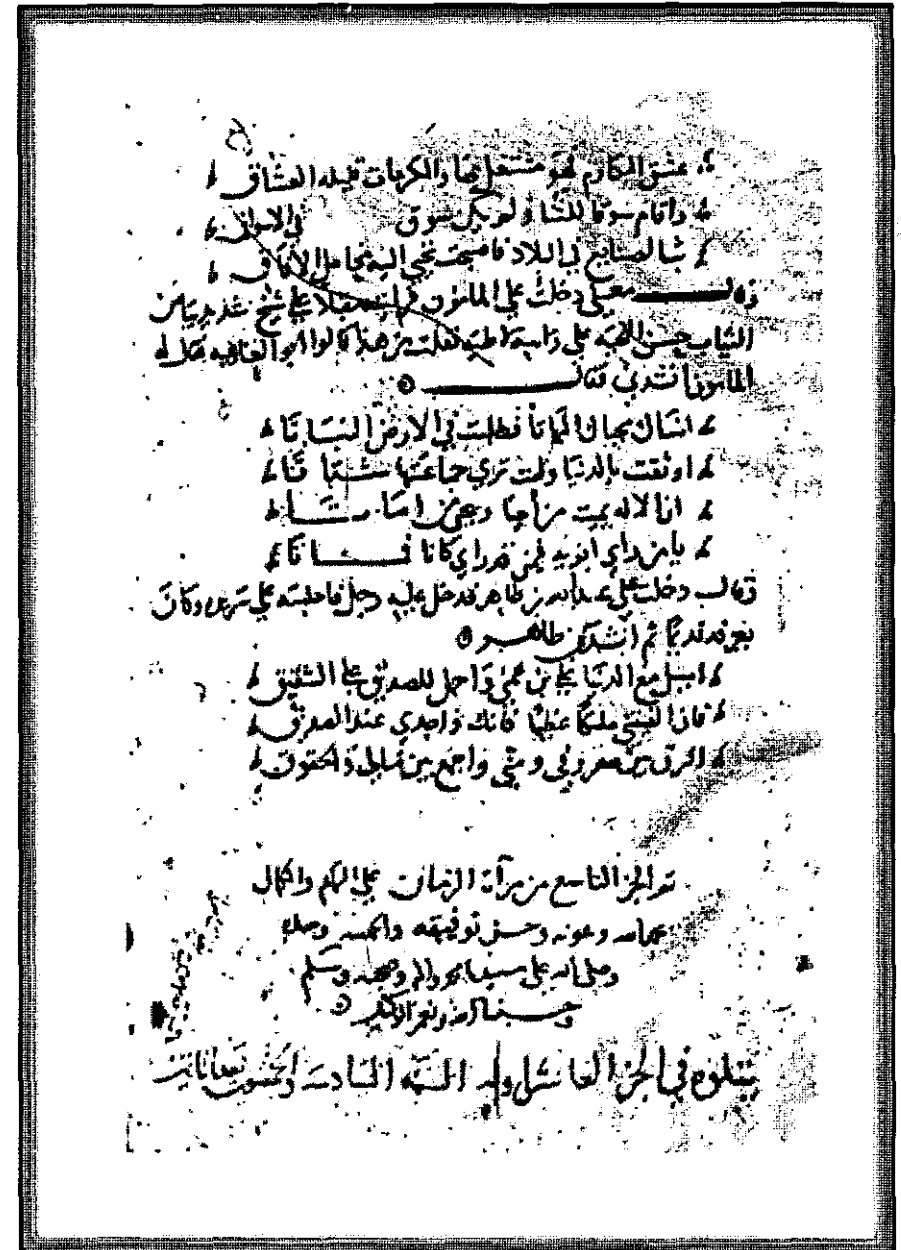 عشق المكارم فهو مشتغل بها والمكرمات قليله العشاق
واقام سوقا للثنا ولم يكن سوق الثنا في الاسواق
بث الصنايع في البلاد فاصبحت تجبي اليه محامد الافاق
وقال دخلت علي المامون فرايته مقبلا علي شيخ شديد بياض
الثياب حسن اللحيه علي راسه لاطيه فقلت من هذا قالوا ابو العتاهيه فقال له
المامون انشدني فقال
انساك محياك المماتا فطلبت في الارض الثباتا
اوثقت بالدنيا وانت تري جماعتها شتاتا
يا من راي ابويه فيمن قد راي كانا فماتا
وقال دخلت علي عبد الله بن طاهر فدخل عليه رجل فاجلسه علي سريره وكان
يعرفه قديما ثم انشد بن طاهر
اميل مع الصديق علي بن عمي واحمل للصديق علي الشقيق
فان الفيتني ملكا عظيما فانك واجدي عند الصديق
افرق بين معروفي ومني واجمع بين مالي والحقوق
تم الجز التاسع من مراة الزمان علي التمام والكمال
بحمد الله وعونه وحسن توفيقه والحمد لله وحده
وصلي الله علي سيدنا محمد واله وصحبه وسلم
وحسبنا الله ونعم الوكيل
يتلوه في الجز العاشر اوله السنه السادسه